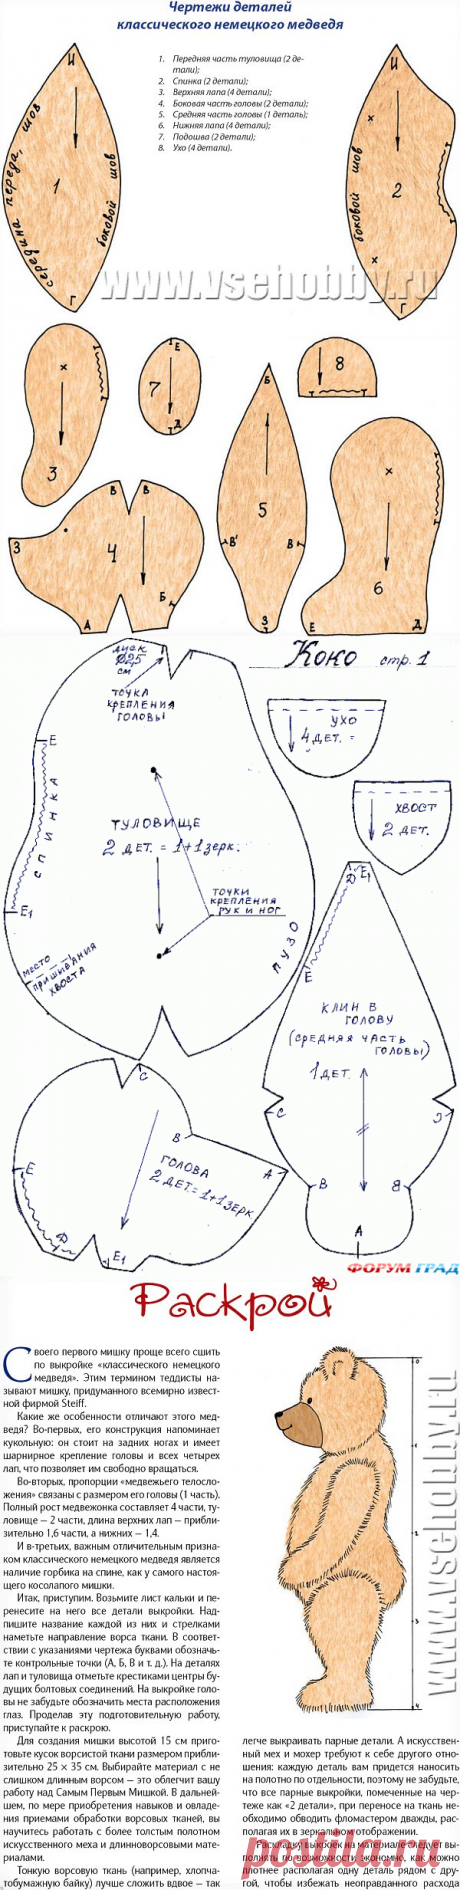 Чертежи деталей
классического немецкого медведя
1. Передняя часть туловища (2 де-
тали);
2. Спинка (2 детали);
3. Верхняя лапа (4 детали);
4. Боковая часть головы (2 детали);
5. Средняя часть головы (1 деталь);
6. Нижняя лапа (4 детали);
7. Подошва (2 детали);
8. Ухо (4 детали).
И
середина переда, шов
1
боковой шов
Г
И
боковой шов
2
Г
www.vsehobby.ru
3
Е
7
Д
Б
5
В' В
З
8
В В
З
4
Б
А
6
Е Д
диск
Ø2,5
см
точка
крепления
головы
Коко стр. 1
ухо
4 дет. =
хвост
2 дет.
Е
спинка
Е1
туловище
2 дет. = 1+1 зерк.
точки
крепления
рук и ног
пузо
место
пришывания
хвоста
Д Е1
Е
клин в
голову
(средняя часть
головы)
1 дет.
С
В
А
С
В
А
голова
2 дет = 1+1 зерк
Е
Д
Е1
ФОРУМ ГРАД
Раскрой
Своего первого мишку проще всего сшить
по выкройке «классического немецкого
медведя». Этим термином теддисты на-
зывают мишку, придуманного всемирно извест-
ной фирмой Steiff.
Какие же особенности отличают этого мед-
ведя? Во-первых, его конструкция напоминает
кукольную: он стоит на задних ногах и имеет
шарнирное крепление головы и всех четырех
лап, что позволяет им свободно вращаться.
Во-вторых, пропорции «медвежьего телосло-
жения» связаны с размером его головы (1 часть).
Полный рост медвежонка составляет 4 части, ту-
ловище — 2 части, длина верхних лап — прибли-
зительно 1,6 части, а нижних — 1,4.
И в-третьих, важным отличительным призна-
ком классического немецкого медведя является
наличие горбика на спине, как у самого настоя-
щего косолапого мишки.
Итак, приступим. Возьмите лист кальки и пе-
ренесите на него все детали выкройки. Над-
пишите название каждой из них и стрелками
наметьте направление ворса ткани. В соответ-
ствии с указаниями чертежа буквами обозначь-
те контрольные точки (А, Б, В и т. д.). На деталях
лап и туловища отметьте крестиками центры бу-
дущих болтовых соединений. На выкройке голо-
вы не забудьте обозначить места расположения
глаз. Проделав эту подготовительную работу,
приступайте к раскрою.
Для создания мишки высотой 15 см приго-
товьте кусок ворсистой ткани размером прибли-
зительно 25 × 35 см. Выбирайте материал с не
слишком длинным ворсом — это облегчит вашу
работу над Самым Первым Мишкой. В дальней-
шем, по мере приобретения навыков и овладе-
ния приемами обработки ворсовых тканей, вы
научитесь работать с более толстым полотном
искусственного меха и длинноворсовыми мате-
риалами.
Тонкую ворсовую ткань (например, хлопча-
тобумажную байку) лучше сложить вдвое — так
0
4
www.vsehobby.ru
легче выкраивать парные детали. А искусствен-
ный мех и мохер требуют к себе другого отно-
шения: каждую деталь вам придется наносить
на полотно по отдельности, поэтому не забудьте,
что все парные выкройки, помеченные на чер-
теже как «2 детали», при переносе на ткань не-
обходимо обводить фломастером дважды, рас-
полагая их в зеркальном отображении.
Раскладку выкроек на материале следует вы-
полнять по возможности экономно, как можно
плотнее располагая одну деталь рядом с дру-
гой, чтобы избежать неоправданного расхода
posila.ru